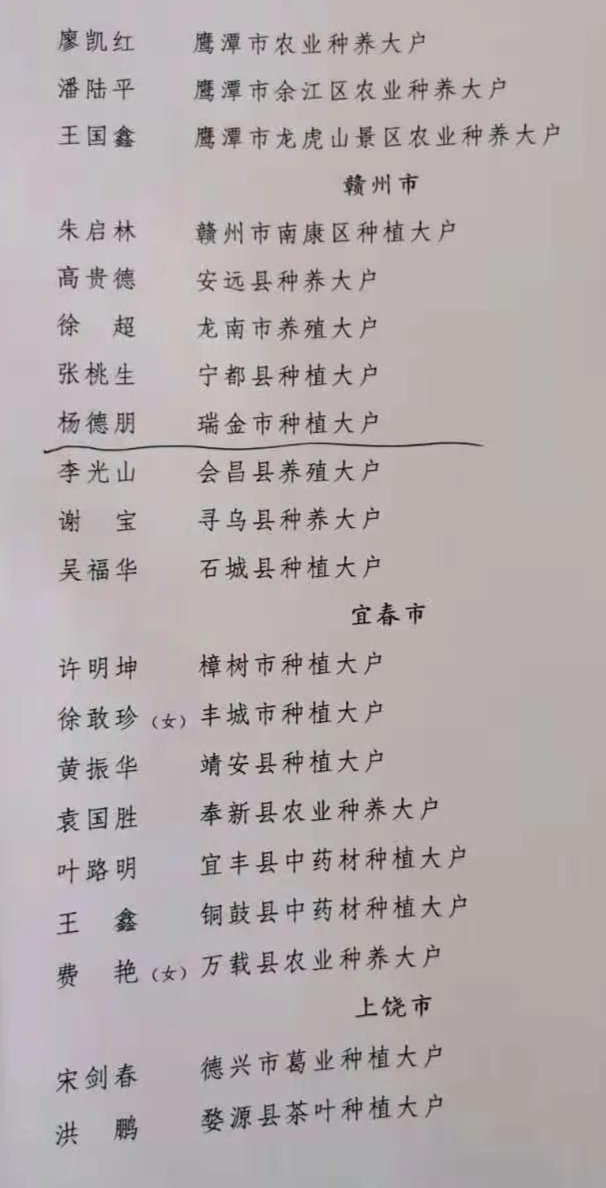 廖凯红 鹰潭市农业种养大户
潘陆平 鹰潭市余江区农业种养大户
王国鑫 鹰潭市龙虎山景区农业种养大户
赣州市
朱启林 赣州市南康区种植大户
高贵德 安远县种养大户
徐 超 龙南市养殖大户
张桃生 宁都县种植大户
杨德朋 瑞金市种植大户
李光山 会昌县养殖大户
谢 宝 寻乌县种养大户
吴福华 石城县种植大户
宜春市
许明坤 樟树市种植大户
徐敢珍（女）丰城市种植大户
黄振华 靖安县种植大户
袁国胜 奉新县农业种养大户
叶路明 宜丰县中药材种植大户
王 鑫 铜鼓县中药材种植大户
费 艳（女）万载县农业种养大户
上饶市
宋剑春 德兴市葛业种植大户
洪 鹏 婺源县茶叶种植大户